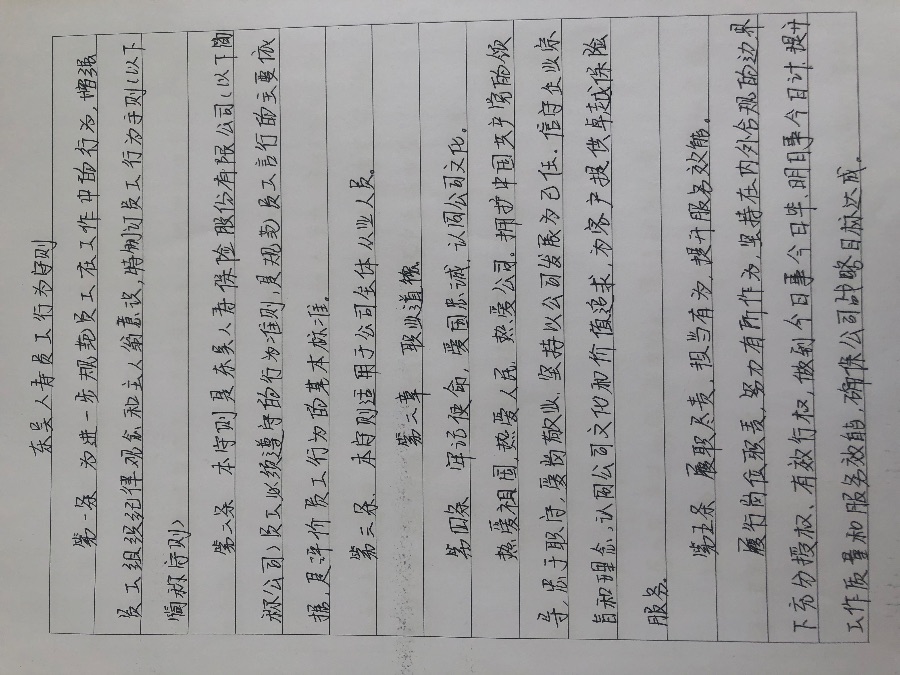 东吴人寿员工行为守则
第一条 为进一步规范员工在工作中的行为,增强
员工组织纪律观念和主人翁意识,特制订员工行为守则(以下
简称守则)
第二条 本守则是东吴人寿保险股份有限公司(以下简
称公司)员工必须遵守的行为准则,是规范员工言行的主要依
据,是评价员工行为的基本标准。
第三条、本守则适用于公司全体从业人员。
第二章 职业道德
第四条 牢记使命,爱国忠诚,认同公司文化。
热爱祖国,热爱人民,热爱公司。拥护中国共产党的领
导,忠于职守,爱岗敬业,坚持以公司发展为己任.信守企业宗
旨和理念,认同公司文化和价值追求,为客户提供卓越保险
服务.
第五条 履职尽责,担当有为,提升服务效能。
履行岗位职责,努力有所作为,坚持在内外合规的边界
下充分授权、有效行权,做到今日事今日毕.明日事今日计.提升
工作质量和服务效能,确保公司战略目标达成。